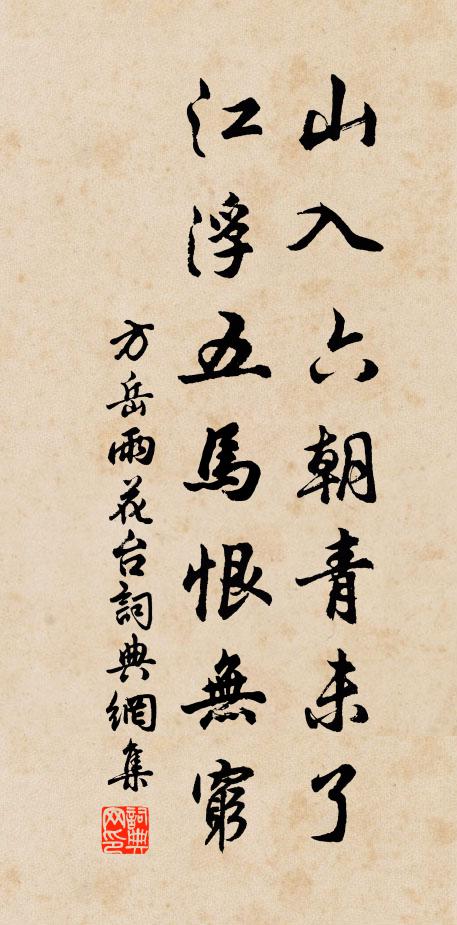 山入六朝青未了
江浮五馬恨無窮
方岳雨花台詞典網集
詞典網印